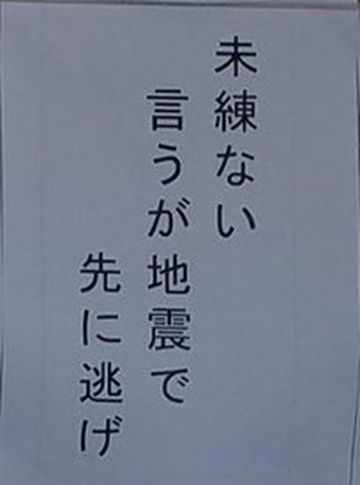 未練ない
言うが地震で
先に逃げ